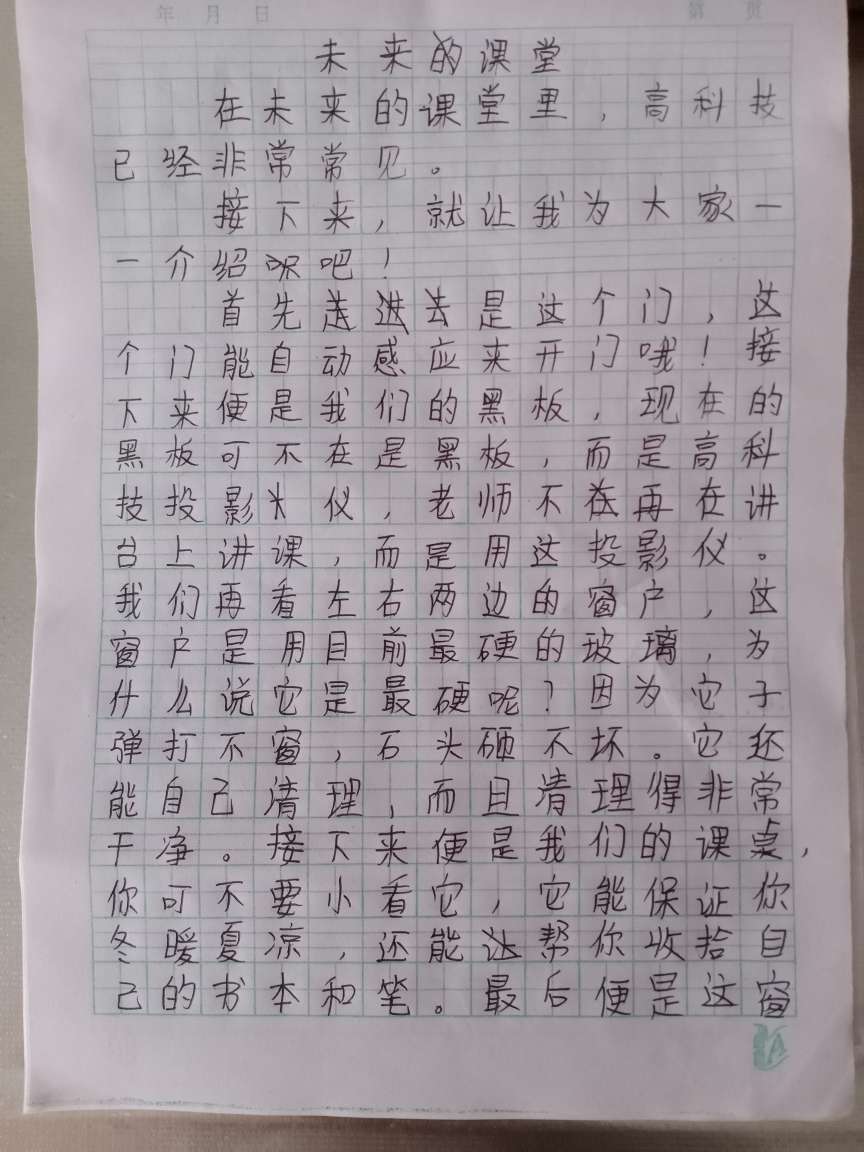 年 月 日 第 页
未来的课堂
在未来的课堂里，高科技
已经非常常见。
接下来，就让我为大家一
一介绍呢吧！
首先走进去是这个门，这
个门能自动感应来开门哦！接
下来便是我们的黑板，现在的
黑板可不在是黑板，而是高科
技投影仪，老师不再在讲
台上讲课，而是用这投影仪。
我们再看左右两边的窗户，这
窗户是用目前最硬的玻璃，为
什么说它是最硬呢？因为它子
弹打不窗，石头砸不坏。它还
能自己清理，而且清理得非常
干净。接下来便是我们的课桌，
你可不要小看它，它能保证你
冬暖夏凉，还能帮你收拾自
己的书本和笔。最后便是这窗